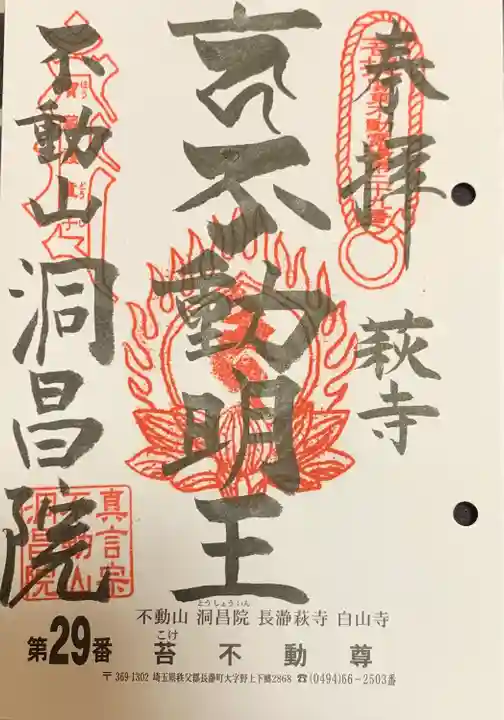 奉拝
萩寺
不動明王
不動山
洞昌院
真言宗
不動山
洞昌院
とうしょういん
不動山 洞昌院 長瀞萩寺 白山寺
こけ
第29番 苔不動尊
〒369-1302 埼玉県秩父郡長瀞町大字野上下郷2868 ☎(0494)66-2503番